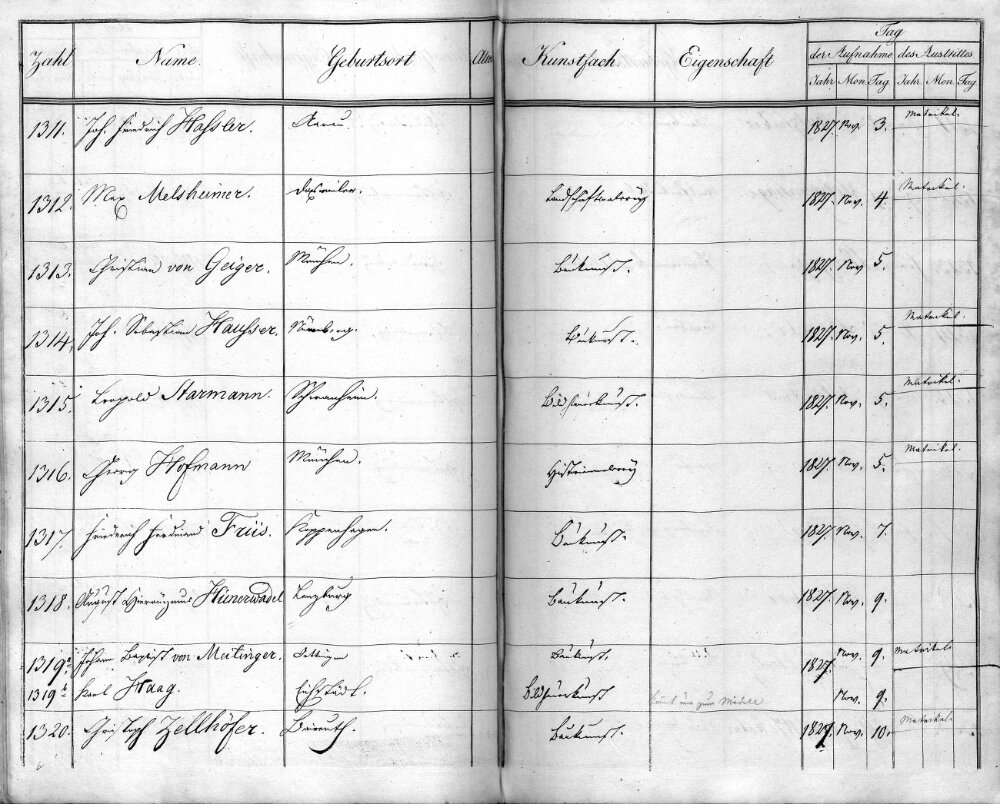 Zahl Name. Geburtsort Alter Kunstfach. Eigenschaft Tag
der Aufnahme des Austrittes
Jahr Mon. Tag. Jahr. Mon. Tag.
1311. Joh. Friedrich Hassler. Aarau. 1827. Nov. 3. Matrikel.
1312. Max Melsheimer. Landschaftmalerey 1827. Nov. 4. Matrikel.
1313. Christian von Geiger. München. Baukunst. 1827. Nov 5.
1314. Joh. Sebastian Hausser. Nürnberg. Baukunst. 1827. Nov. 5. Matrikel.
1315. Leopold Starmann. Schwanheim. Bildhauerkunst. 1827. Nov. 5. Matrikel.
1316. Georg Hofmann München. Historienmalerey 1827. Nov. 5. Matrikel.
1317. Friedrich Ferdinand Friis. Koppenhagen. Baukunst. 1827. Nov. 7.
1318. August Hieronymus Hünerwadel Lenzburg Baukunst. 1827. Nov. 9.
1319a. Johann Baptist von Meitinger. Oettingen Baukunst. 1827. Nov. 9. Matrikel
1319b Karl Haag. Eichstädt. Bildhauerkunst Nov. 9.
1320. Christoph Zellhöfer. Baireuth. Baukunst. 1827. Nov. 10. Matrikel